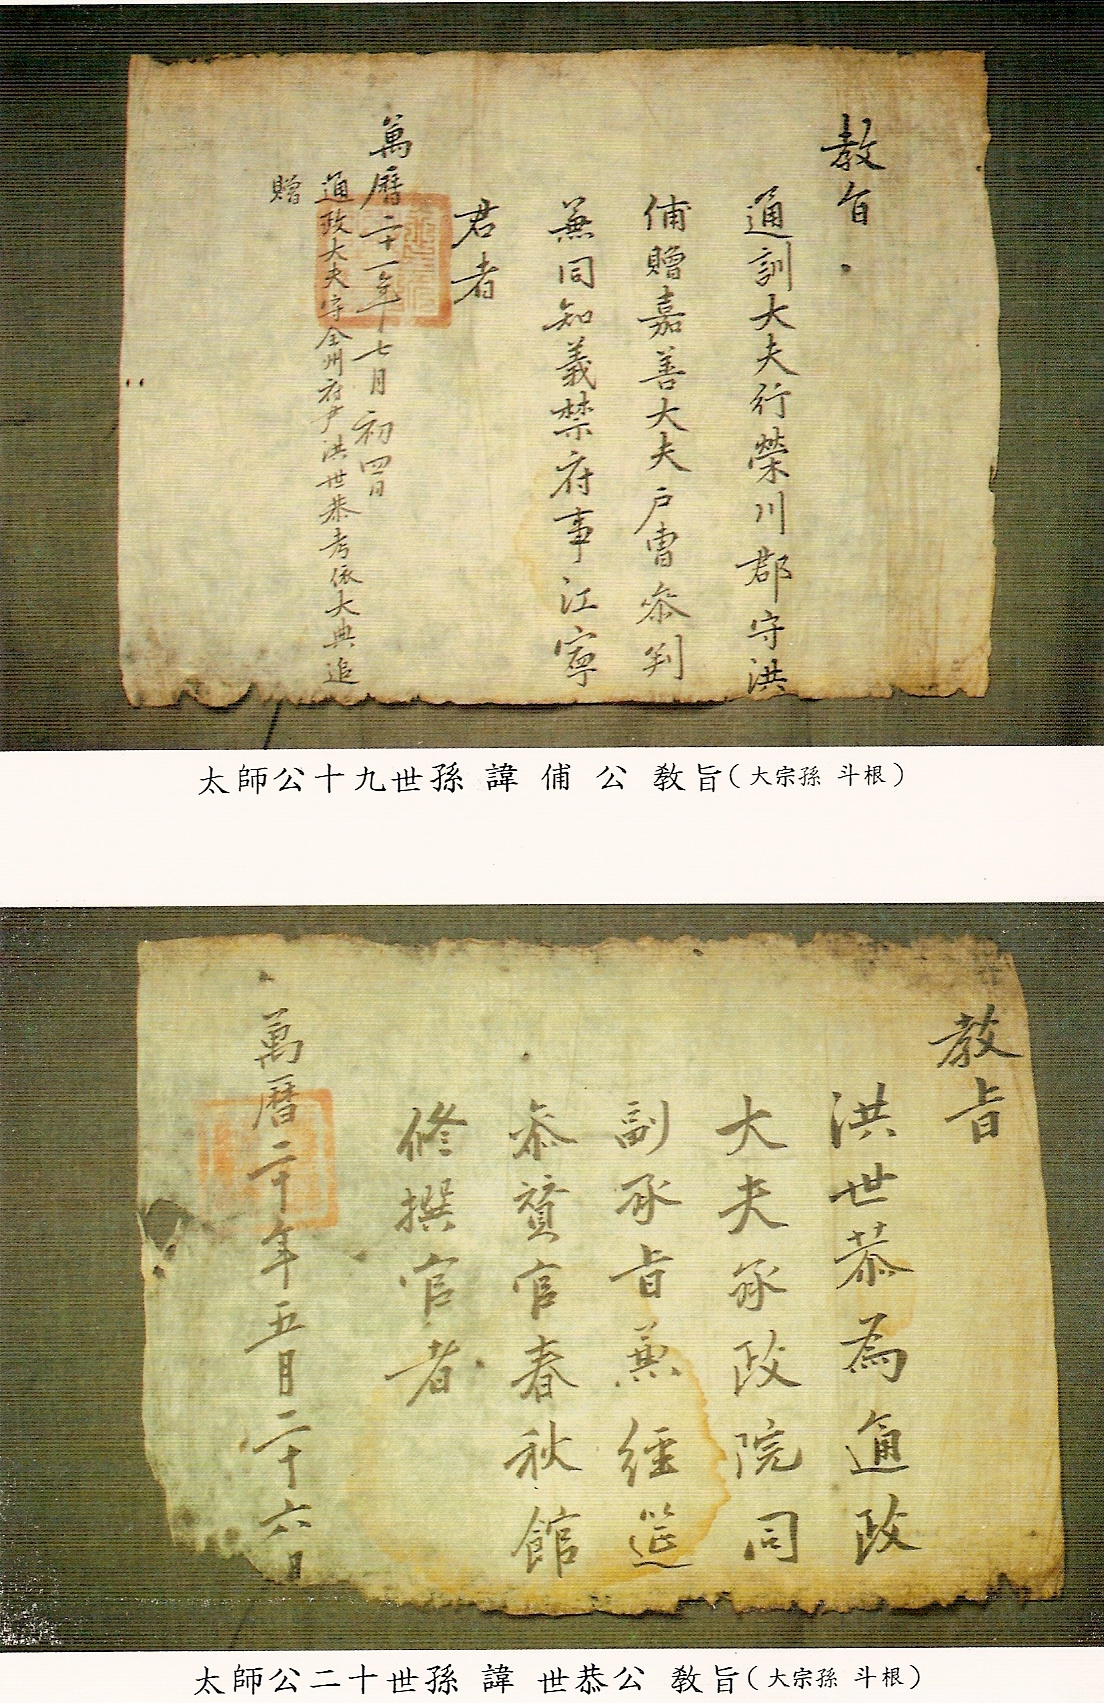 教旨
通訓大夫行榮川郡守洪
俌贈嘉善大夫戶曹叅判
兼同知義禁府事江寧
君者
萬曆二十一年十七月初四日
通政大夫守全州府尹洪世恭考依大典追
贈
太師公十九世孫 諱 俌 公 敎旨(大宗孫 斗根)
教旨
洪世恭為通政
大夫承政院同
副承旨兼經筵
叅贊官春秋館
修撰官者
萬曆二十年五月二十六日
太師公二十世孫 諱 世恭公 敎旨(大宗孫 斗根)